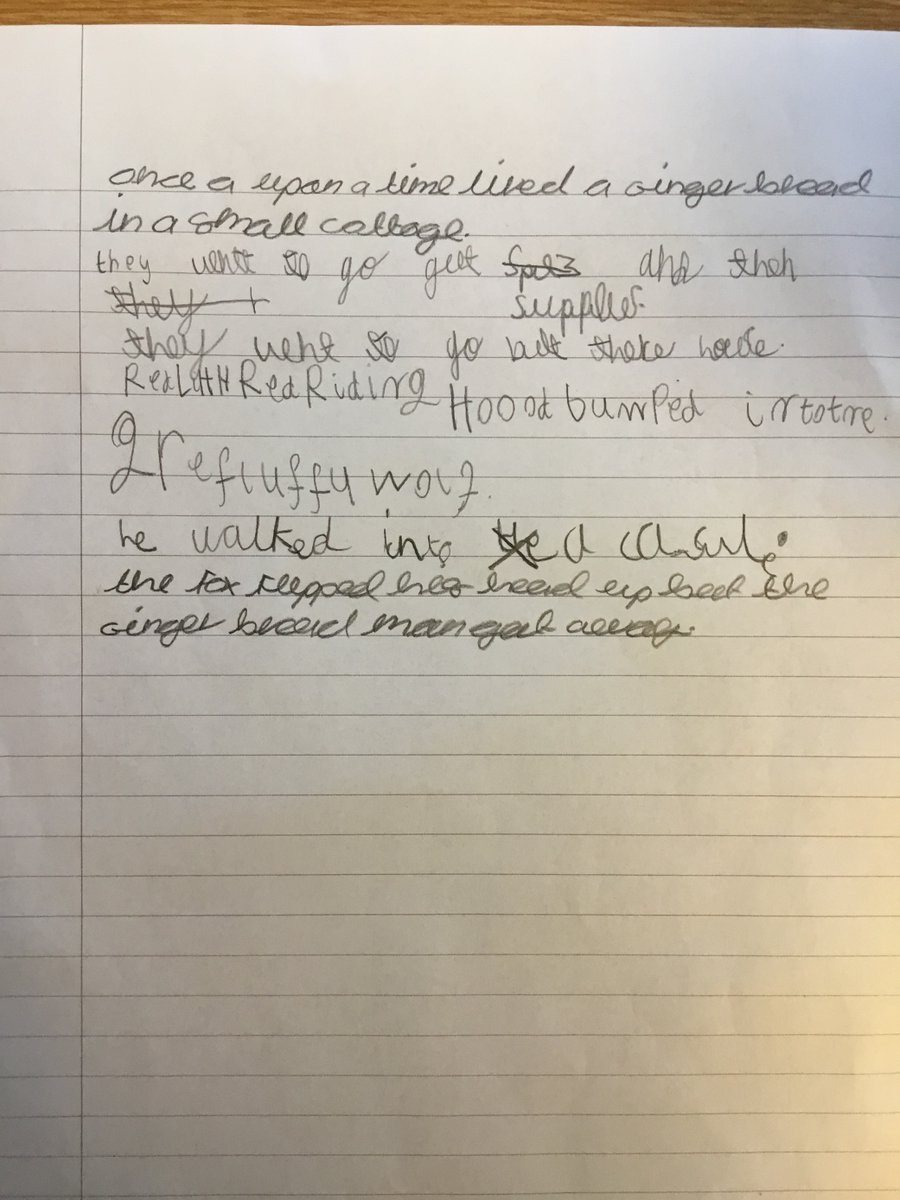 once a upon a time lived a ginger bread
in a small cottage.
they went to go get and then
they t
supplies.
they went to go
Red Riding Hoood bumped in to the.
gre fluffy wolf.
he walked into a
the fox head up but the
ginger bread man got away.